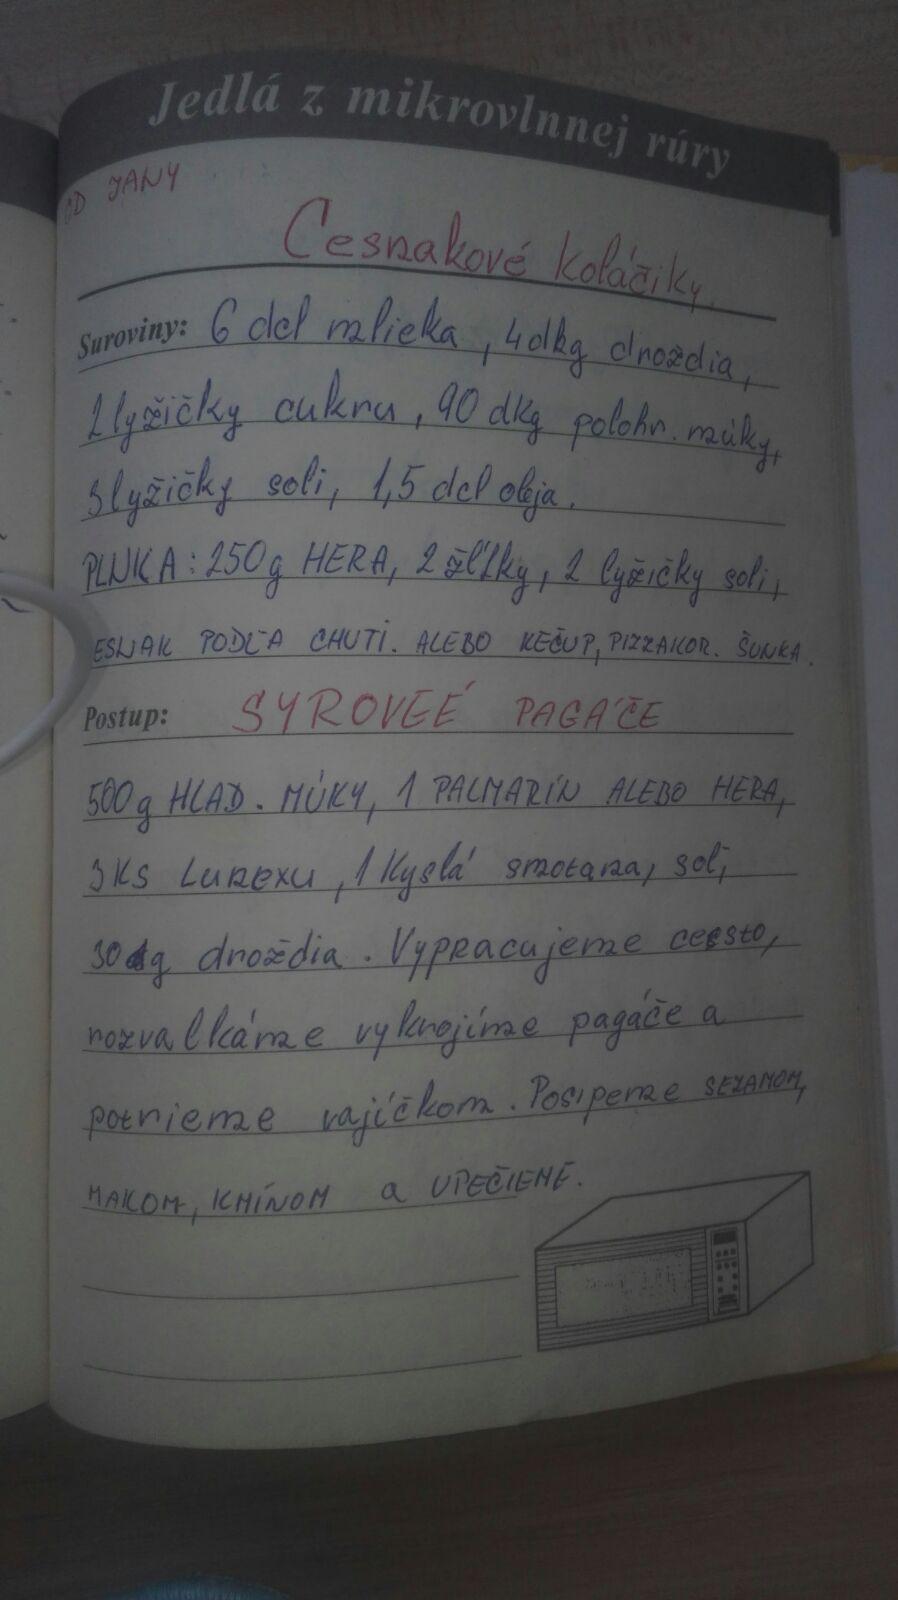 Jedlá z mikrovlnnej rúry
OD JANY
Cesnakové koláčiky.
Suroviny: 6 dcl mlieka, 4dkg droždia,
2 lyžičky cukru, 90 dkg polohr. múky,
3 lyžičky soli, 1,5 dcl oleja.
PLNKA: 250g HERA, 2 žĺtky, 2 lyžičky soli,
ESNAK PODĽA CHUTI. ALEBO KEČUP, PIZZAKOR. ŠUNKA.
Postup: SYROVEÉ PAGÁČE
500g HLAD. MÚKY, 1 PALMARÍN ALEBO HERA,
3KS LUREXU, 1 Kyslá smotana, soľ,
30g droždia. Vypracujeme cesto,
rozvalkáme vykrojíme pagáče a
potrieme vajíčkom. Posipeme SEZAMOM,
MAKOM, KMÍNOM a UPEČIEME.